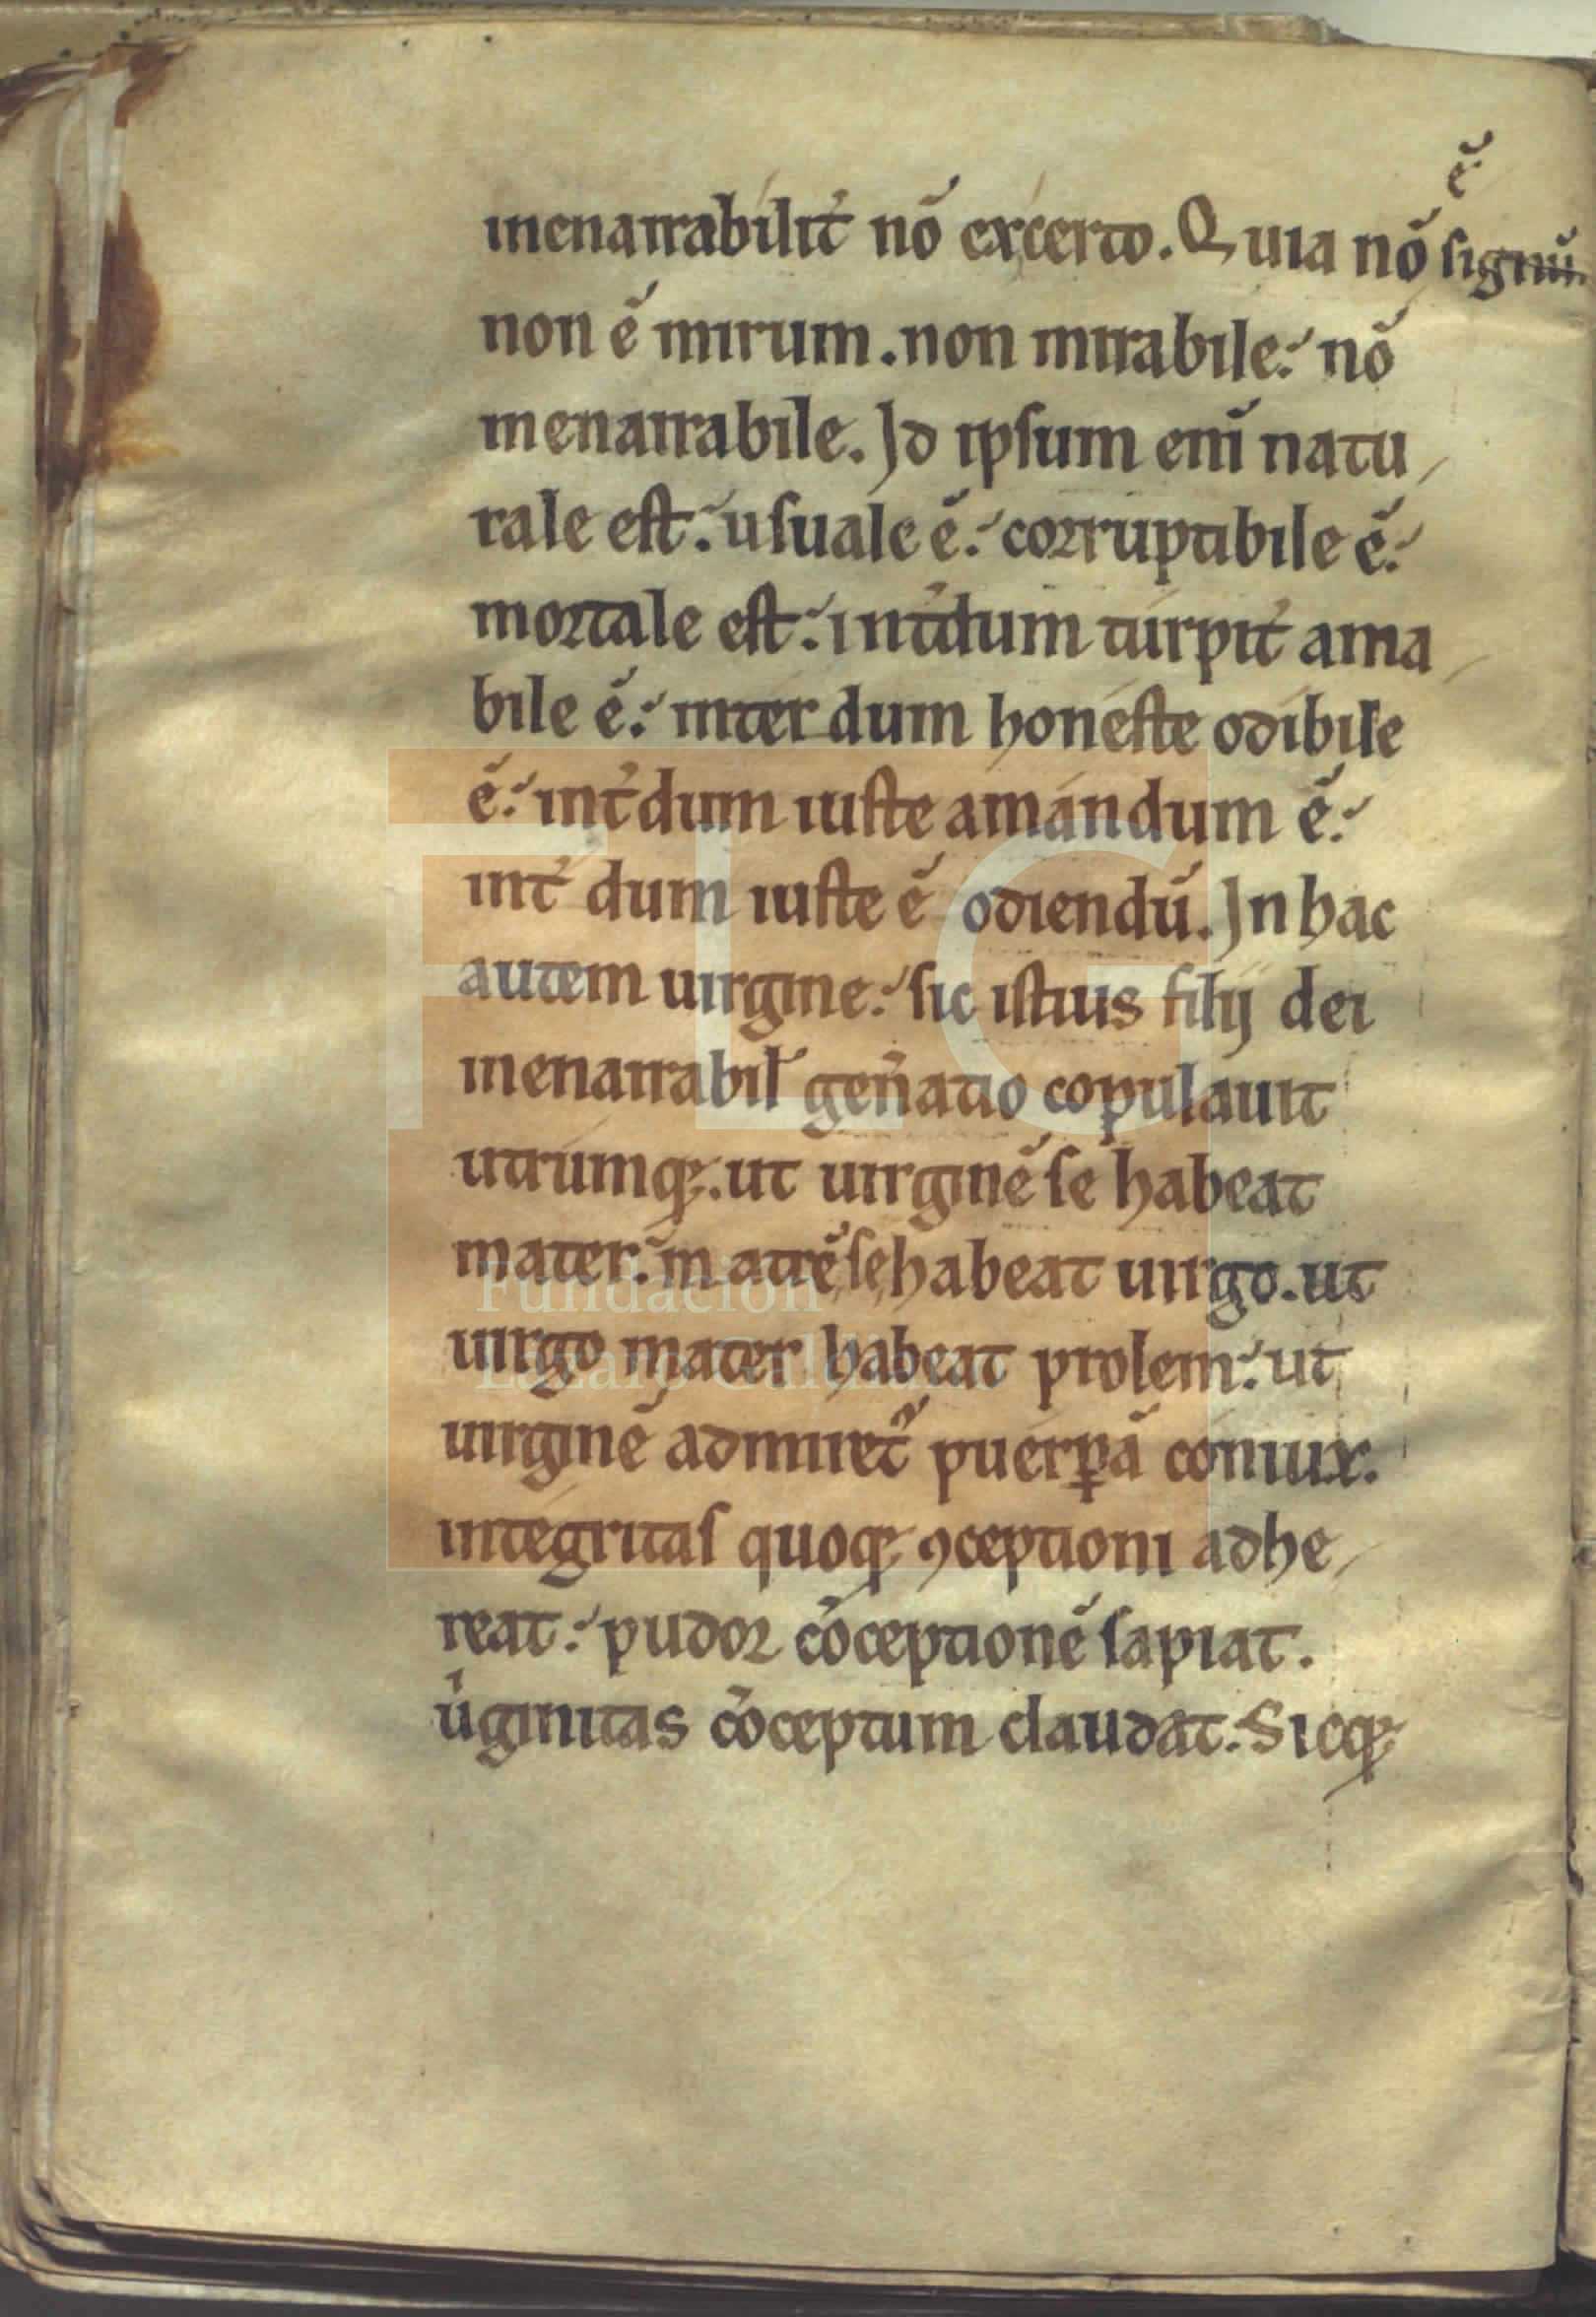 ẽ
inenarrabilit̉ nõ excerto. Quia nõ signũ.
non ẽ mirum. non mirabile: nõ
inenarrabile. Id ipsum enĩ natu
rale est: usuale ẽ: corruptibile ẽ:
mortale est: int̉dum turpit̉ ama
bile ẽ: interdum honeste odibile
ẽ: int̉dum iuste amandum ẽ:
int̉dum iuste ẽ odiendũ. In hac
autem uirgine: sic istius filij dei
inenarrabil̃ geñatio copulauit
utrumq;. ut uirginẽ se habeat
mater: matrẽ se habeat uirgo. ut
uirgo mater habeat prolem: ut
uirginẽ admiret̃ puerꝑã coniux.
integritas quoq; ꝯceptioni adhe
reat: pudor cõceptionẽ sapiat.
uͥginitas cõceptum claudat: Sicq;
FLG
Fundación
Lázaro Galdiano